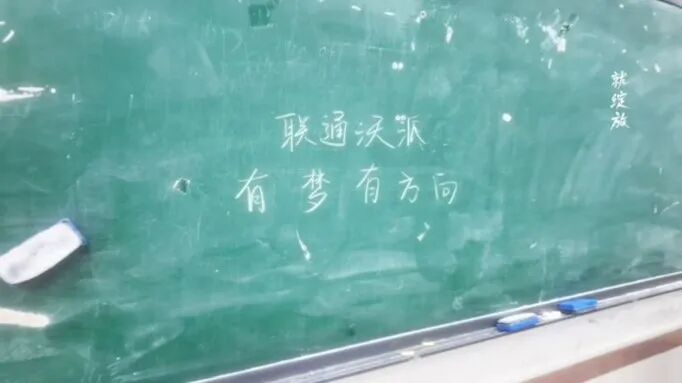 联通沃派
有梦有方向
就绽放